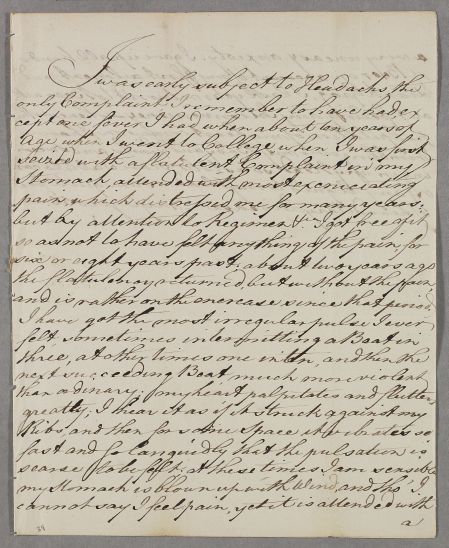 I was early subject to Headachs the
only Complaint I remember to have had ex
cept one fever I had when about ten years of
Age, when I went to College when I was first
seized with a flatulent Complaint in my
Stomach, attended with most excruciating
pain, which distressed me for many years;
but by attention to Regimen &ca I got free of it
so as not to have felt any thing of the pain, for
six or eight years past, about two years ago
the flatulency returned but without the Pain
and is rather on the encrease since that period,
I have got the most irregular pulse I ever
felt, sometimes intermitting a Beat in
three, at other times one in ten, and then the
next succeeding Beat much more violent
than ordinary. my heart palpitates and flutters
greatly; I hear it as if it struck against my
Ribs and then for some space it vibrates so
fast and so languidly that the pulsation is
scarse to be felt; at these times I am sensible
my Stomach is blown up with Wind, and tho' I
cannot say I feel pain, yet it is attended with
a